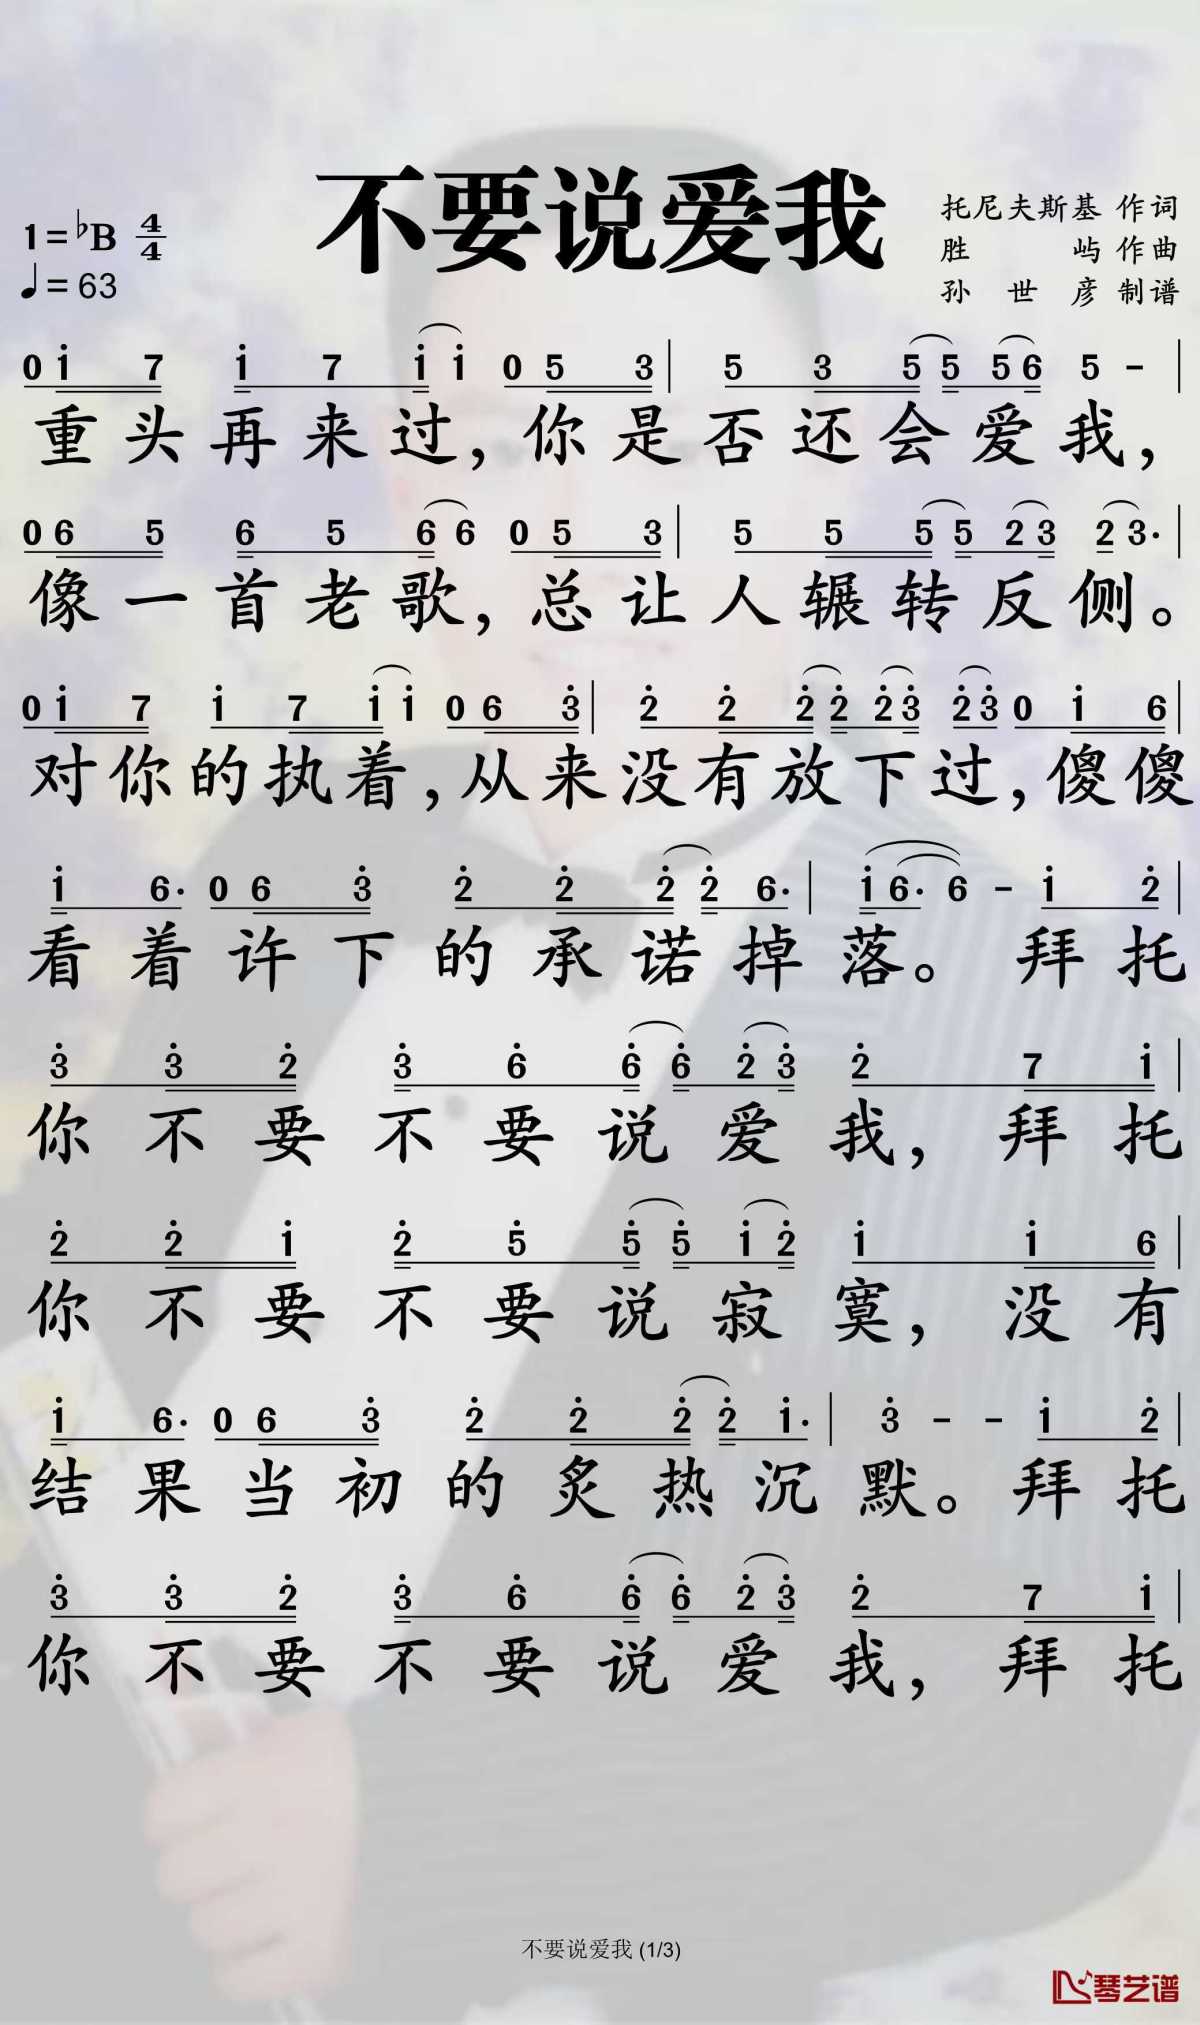 不要说爱我
1=♭B 4/4
♩=63
托尼夫斯基 作词
胜屿 作曲
孙世彦 制谱
0 i 7 i 7 i i 0 5 3 | 5 3 5 5 5 6 5 - |
重头再来过,你是否还会爱我,
0 6 5 6 5 6 6 0 5 3 | 5 5 5 5 2 3 2 3· |
像一首老歌,总让人辗转反侧。
0 i 7 i 7 i i 0 6 3̇ | 2̇ 2̇ 2̇ 2̇ 2̇ 3̇ 2̇ 3̇ 0 i 6 |
对你的执着,从来没有放下过,傻傻
i 6· 0 6 3̇ 2̇ 2̇ 2̇ 2̇ 6· | i 6· 6 - i 2̇ |
看着许下的承诺掉落。拜托
3̇ 3̇ 2̇ 3̇ 6̇ 6̇ 6̇ 2̇ 3̇ 2̇ 7 i |
你不要不要说爱我,拜托
2̇ 2̇ i 2̇ 5̇ 5̇ 5̇ i 2̇ i i 6 |
你不要不要说寂寞,没有
i 6· 0 6 3̇ 2̇ 2̇ 2̇ 2̇ i· | 3̇ - - i 2̇ |
结果当初的炙热沉默。拜托
3̇ 3̇ 2̇ 3̇ 6̇ 6̇ 6̇ 2̇ 3̇ 2̇ 7 i |
你不要不要说爱我,拜托
不要说爱我 (1/3)
琴艺谱